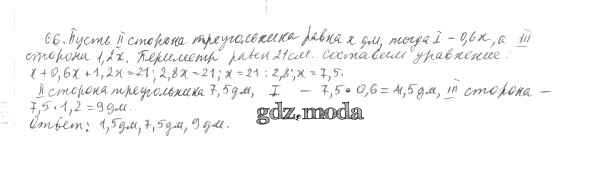 66. Пусть II сторона треугольника равна x дм, тогда I - 0,6x, а III
сторона 1,2x. Периметр равен 21см. Составим уравнение:
x + 0,6x + 1,2x = 21; 2,8x = 21; x = 21 : 2,8; x = 7,5.
II сторона треугольника 7,5дм, I - 7,5 • 0,6 = 4,5дм, III сторона -
7,5 • 1,2 = 9дм.
Ответ: 1,5дм, 7,5дм, 9дм.
gdz.moda